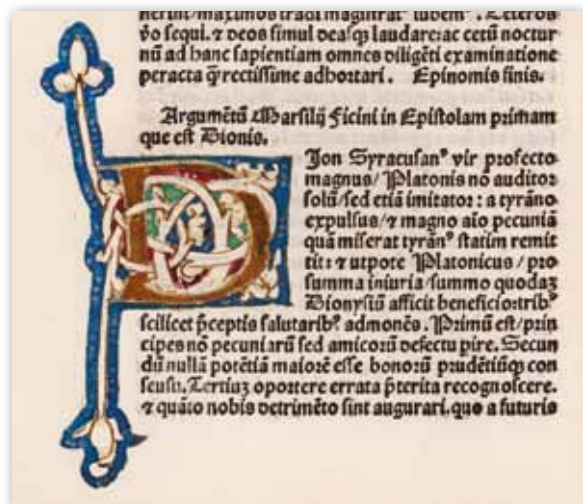 neriūt/maximos tradi magistrat⁹ iubem⁹. Ceteros
ṽo sequi. ⁊ deos simul deasq̃ laudare: ac cetū noctur
nū ad hanc sapientiam omnes diligēti examinatione
peracta q̄ rectissime adhortari. Epinomis finis.
Argumētū Marsilij ficini in Epistolam primam
que est Dionis.
Dion Syracusan⁹ vir profecto
magnus/Platonis nō auditor
solū/sed etiā imitator: a tyrāno
expulsus/⁊ magno aīo pecuniā
quā miserat tyrān⁹ statim remit
tit: ⁊ utpote Platonicus/pro
summa iniuria/summo quodaʒ
Dionysiū afficit beneficio: trib⁹
scilicet p̄ceptis salutarib⁹ admonēs. Primū est/prin
cipes nō pecuniarū sed amicorū defectu pire. Secun
dū nullā potētiā maiorē esse bonorū prudētiūq̃ con
sensu. Tertiuʒ oportere errata p̄terita recognoscere.
⁊ quāto nobis detrimēto sint augurari. quo a futuris